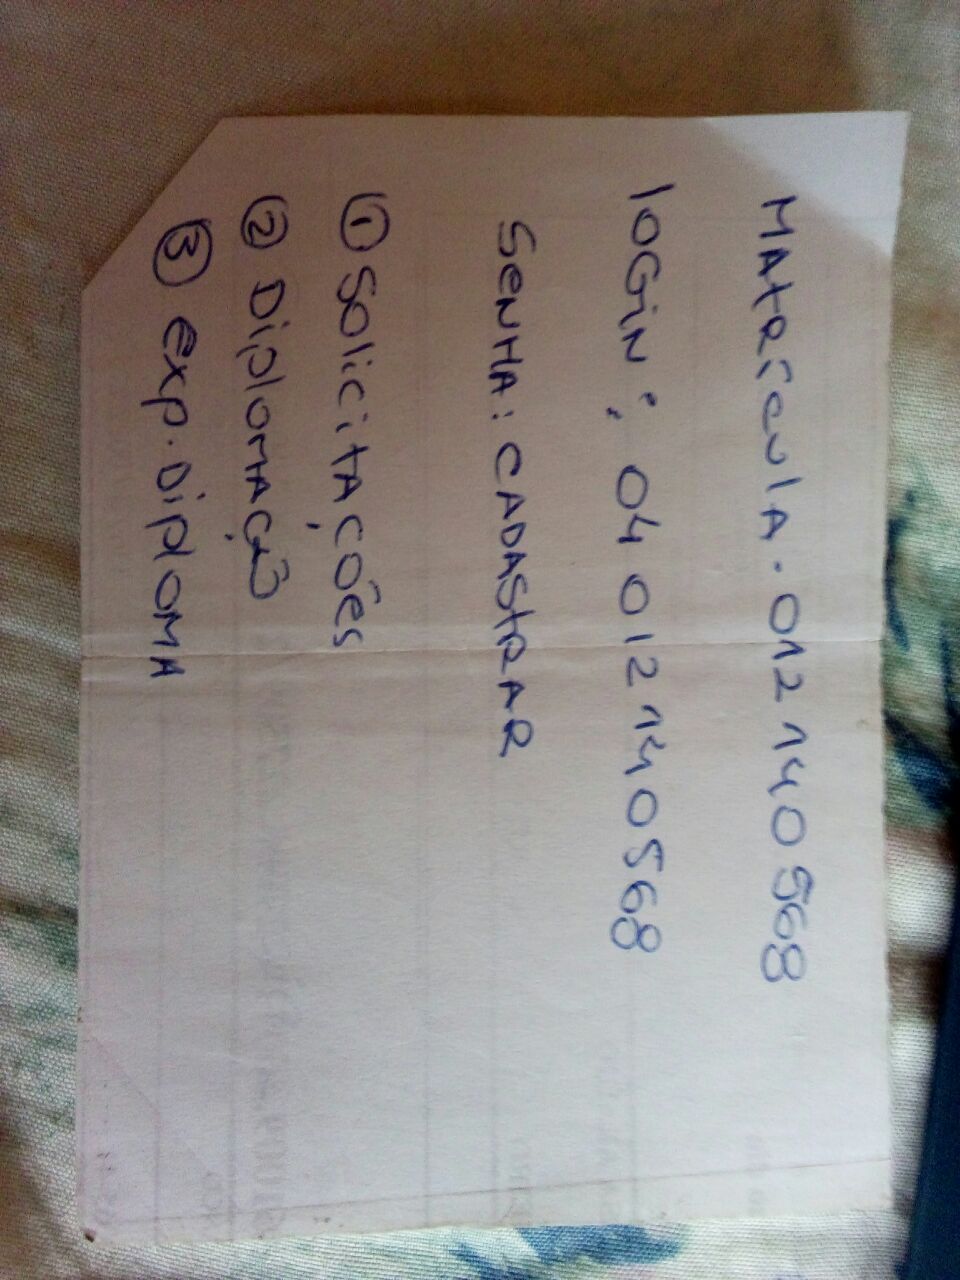 MAtRículA. 012140568
loGiN: 04012140568
SENHA: CADAStRAR
① Solicitações
② DiplomAção
③ Exp. DiplomA